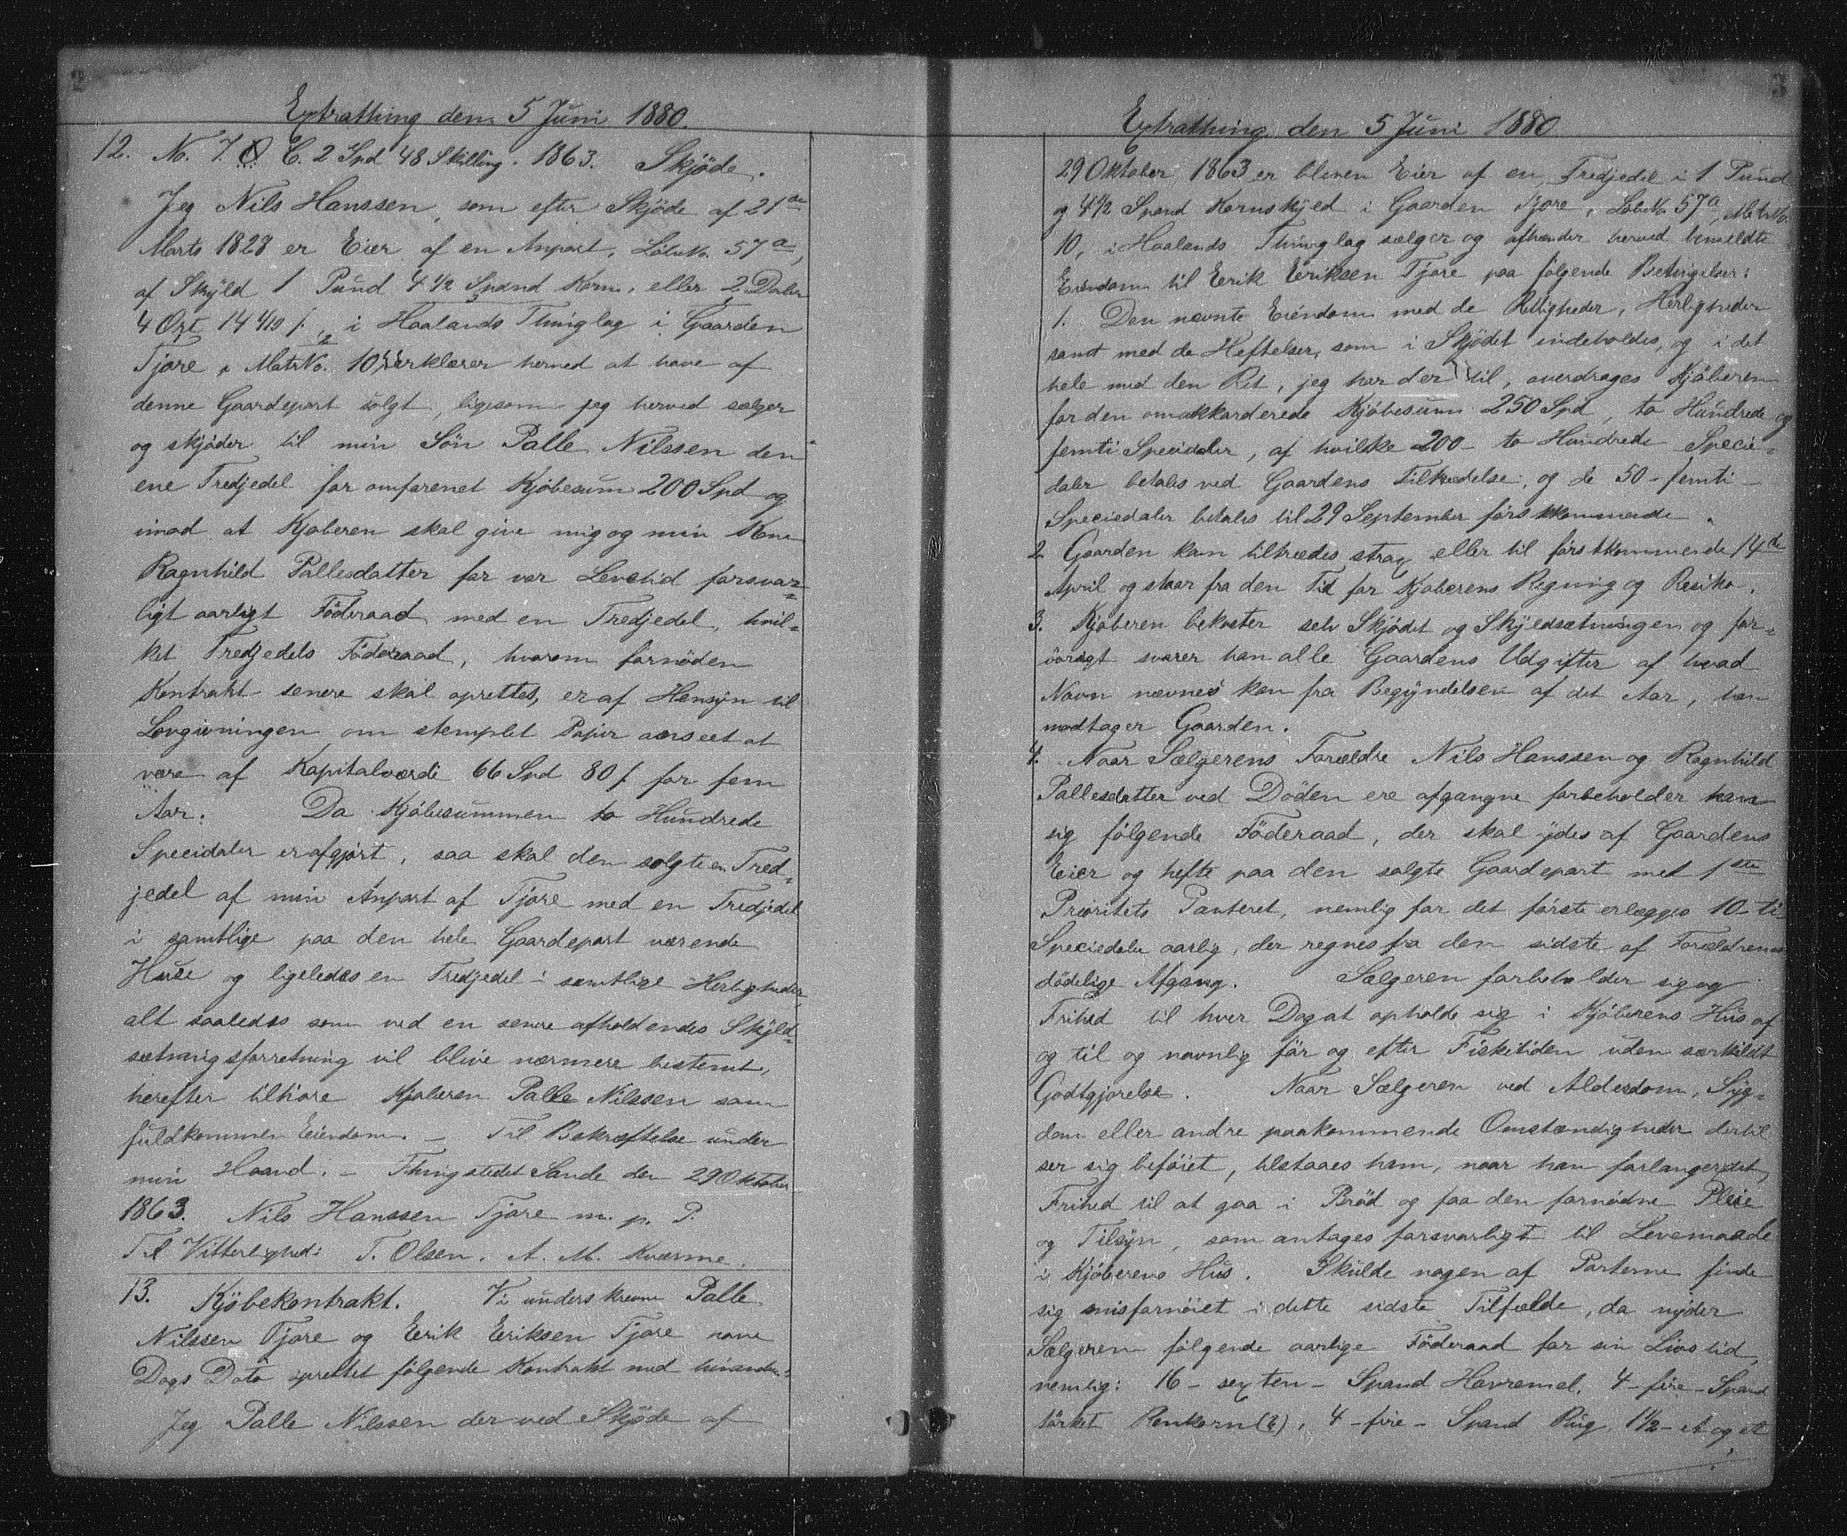 2
Extrathing dem 5 Juni 1880.
12. No. 7. C. 2 Spd 48 Skilling. 1863. Skjøde.
Jeg Nils Hanssen, som efter Skjøde af 21de
Marts 1828 er Eier af en Anpart, LøbeNo. 57a,
af Skyld 1 Pund 4 1/2 Spand Korn, eller 2 Daler
4 Ort 14 4/19 /., i Haalands Thinglag i Gaarden
Tjore, MatrNo. 10, erklærer herved at have af
denne Gaardepart solgt, ligesom jeg herved sælger
og skjøder til min Søn Palle Nilssen den
ene Tredjedel for omforenet Kjøbesum 200 Spd og
imod at Kjøberen skal give mig og min Kone
Ragnhild Pallesdatter for vor Levetid forsvar-
ligt aarligt Føderaad med en Tredjedel, hvil-
ket Tredjedels Føderaad, hvorom fornøden
Kontrakt senere skal oprettes, er af Hensyn til
Lovgivningen om stemplet Papir anseet at
være af Kapitalværdi 66 Spd 80 / for fem
Aar. Da Kjøbesummen to Hundrede
Specidaler er afgjort, saa skal den solgte en Tred-
jedel af min Anpart af Tjore med en Tredjedel
i samtlige paa den hele Gaardepart værende
Huse og ligeledes en Tredjedel i samtlige Herligheder,
alt saaledes som ved en senere afholdendes Skyld-
sætningsforretning vil blive nærmere bestemt,
herefter tilhøre Kjøberen Palle Nilssen som
fuldkommen Eiendom. — Til Bekræftelse under
min Haand. — Thingstedet Sande den 29 Oktober
1863. Nils Hanssen Tjore m. p. P.
Til Vitterlighed: T. Olsen. A. M. Kværme.
13. Kjøbekontrakt. Vi underskrevne Palle
Nilssen Tjore og Eerik Eeriksen Tjore have
Dags Dato oprettet følgende Kontrakt med hinanden:
Jeg Palle Nilssen der ved Skjøde af
3
Extrathing den 5 Juni 1880
29 Oktober 1863 er bleven Eier af en Tredjedel i 1 Pund
og 4 1/2 Spand Kornskyld i Gaarden Tjore, LøbeNo. 57a, MatrNo.
10, i Haalands Thinglag sælger og afhænder herved bemeldte
Eiendom til Eerik Eeriksen Tjore paa følgende Betingelser:
1. Den nævnte Eiendom med de Rettigheder, Herligheder
samt med de Heftelser, som i Skjødet indeholdes, og i det
hele med den Ret, jeg har der til, overdrages Kjøberen
for den omakkorderede Kjøbesum 250 Spd, to Hundrede og
femti Specidaler, af hvilke 200 - to Hundrede Specie-
daler betales ved Gaardens Tiltrædelse, og de 50 - femti -
Speciesdaler betales til 29 September førstkommende.
2. Gaarden kan tiltrædes strax eller til førstkommende 14de
April og staar fra den Tid for Kjøberens Regning og Risiko.
3. Kjøberen bekoster selv Skjødet og Skyldsætningen og for-
øvrigt svarer han alle Gaardens Udgifter af hvad
Navn nævnes kan fra Begyndelsen af det Aar, han
modtager Gaarden.
4. Naar Sælgerens Forældre Nils Hanssen og Ragnhild
Pallesdatter ved Døden ere afgangne forbeholder han
sig følgende Føderaad, der skal ydes af Gaardens
Eier og hefte paa den solgte Gaardepart med 1ste
Prioritets Panteret, nemlig for det første erlægges 10 - ti
Speciesdaler aarlig, der regnes fra den sidste af Forældrenes
dødelige Afgang. Sælgeren forbeholder sig og
Frihed til hver Dag at opholde sig i Kjøberens Hus af
og til og navnlig før og efter Fisketiden uden særkildt
Godtgjørelse. Naar Sælgeren ved Alderdom, Syg-
dom eller andre paakommende Omstændigheder dertil
ser sig beføiet, tilstaaes ham, naar han forlanger det,
Frihed til at gaa i Brød og faa den fornødne Pleie
og Tilsyn, som antages forsvarligt til Levemaade
i Kjøberens Hus. Skulde nogen af Parterne finde
sig misfornøiet i dette sidste Tilfælde, da nyder
Sælgeren følgende aarlige Føderaad for sin Livstid,
nemlig: 16 - sexten - Spand Havremel, 4 - fire - Spand
tørket Renkorn (?), 4 - fire - Spand Riug 1 1/2 - et og et